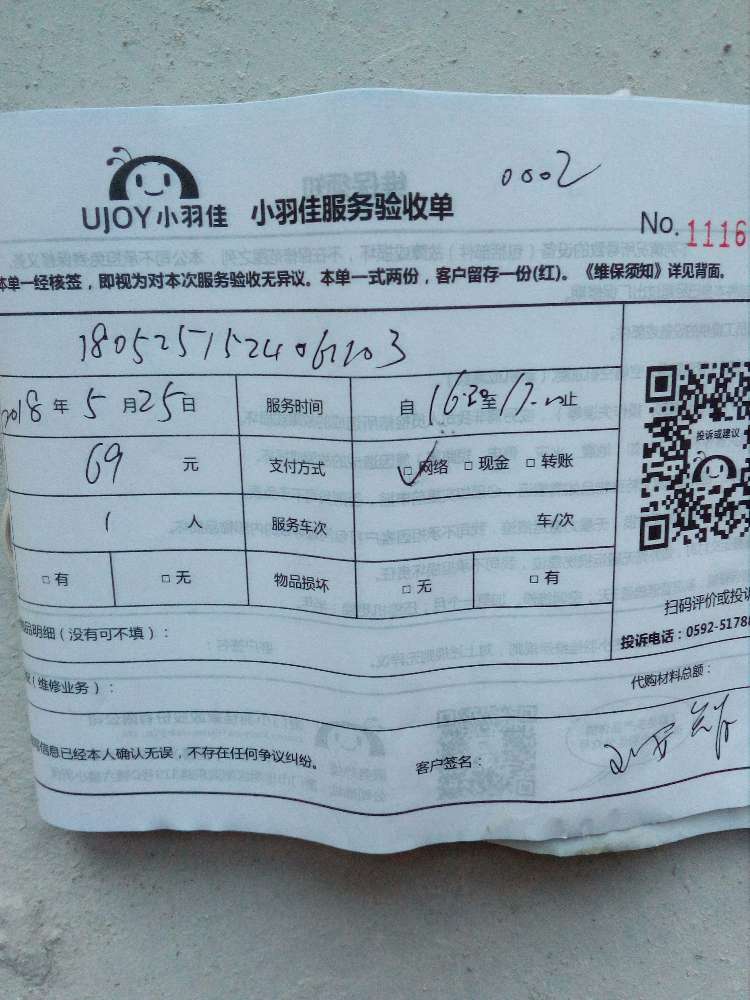 0002
UJOY小羽佳 小羽佳服务验收单
No. 1116
本单一经核签，即视为对本次服务验收无异议。本单一式两份，客户留存一份(红)。《维保须知》详见背面。
2018年5月25日 服务时间 自16:30至17:00止
69元 支付方式 ✓□网络 □现金 □转账
投诉或建议
1人 服务车次 车/次
□有 □无 物品损坏 □无 □有
扫码评价或投诉
品明细（没有可不填）：
投诉电话：0592-51788
（维修业务）：
代购材料总额：
信息已经本人确认无误，不存在任何争议纠纷。 客户签名：